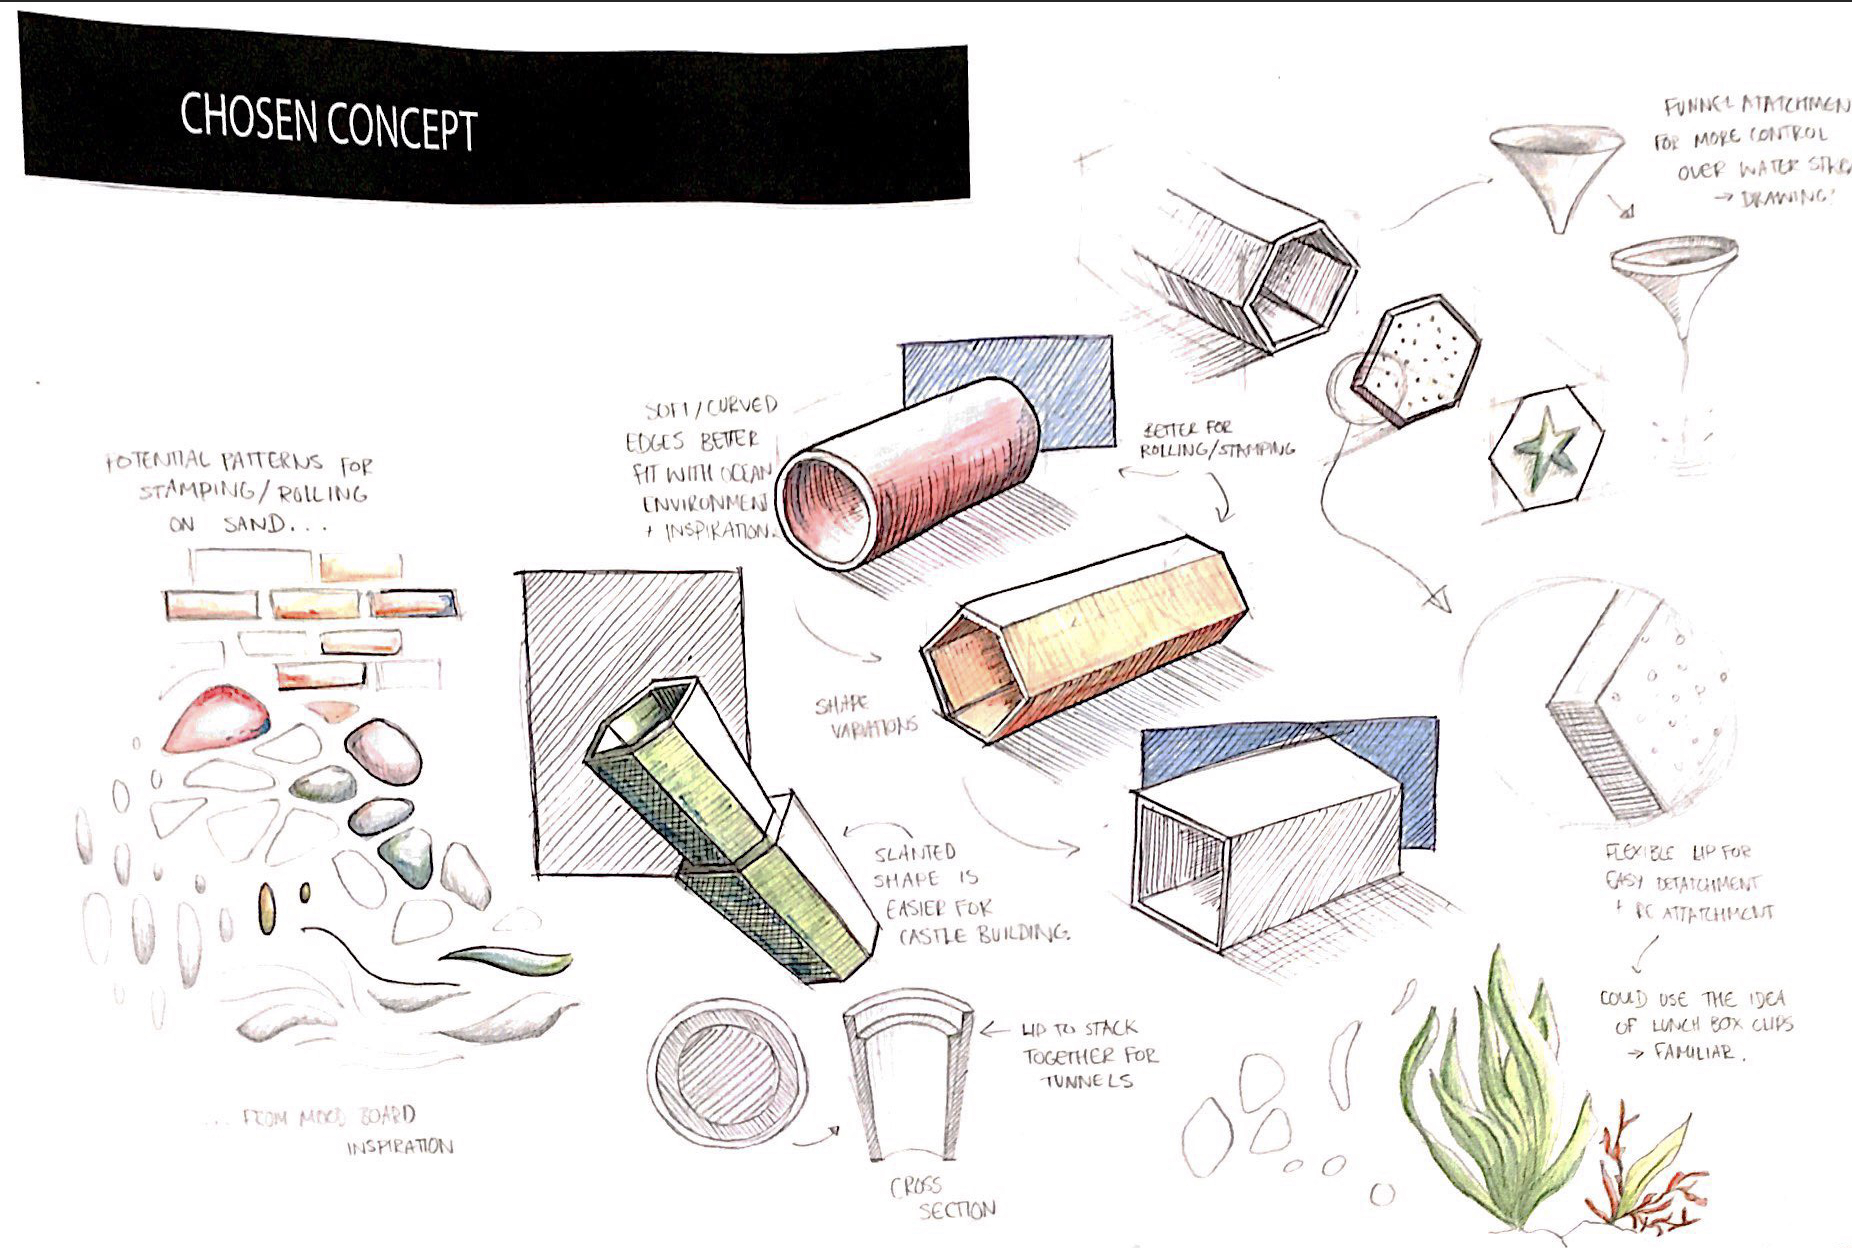 CHOSEN CONCEPT
FUNNEL ATATCHMEN
FOR MORE CONTROL
OVER WATER
→ DRAWING?
SOFT/CURVED
EDGES BETTER
FIT WITH OCEAN
ENVIRONMENT
+ INSPIRATION.
BETTER FOR
ROLLING/STAMPING
POTENTIAL PATTERNS FOR
STAMPING/ROLLING
ON SAND...
SHAPE
VARIATIONS
SLANTED
SHAPE IS
EASIER FOR
CASTLE BUILDING.
FLEXIBLE LIP FOR
EASY DETATCHMENT
+ RE ATTATCHMENT
COULD USE THE IDEA
OF LUNCH BOX CLIPS
→ FAMILIAR.
LIP TO STACK
TOGETHER FOR
TUNNELS
CROSS
SECTION
... FROM MOOD BOARD
INSPIRATION